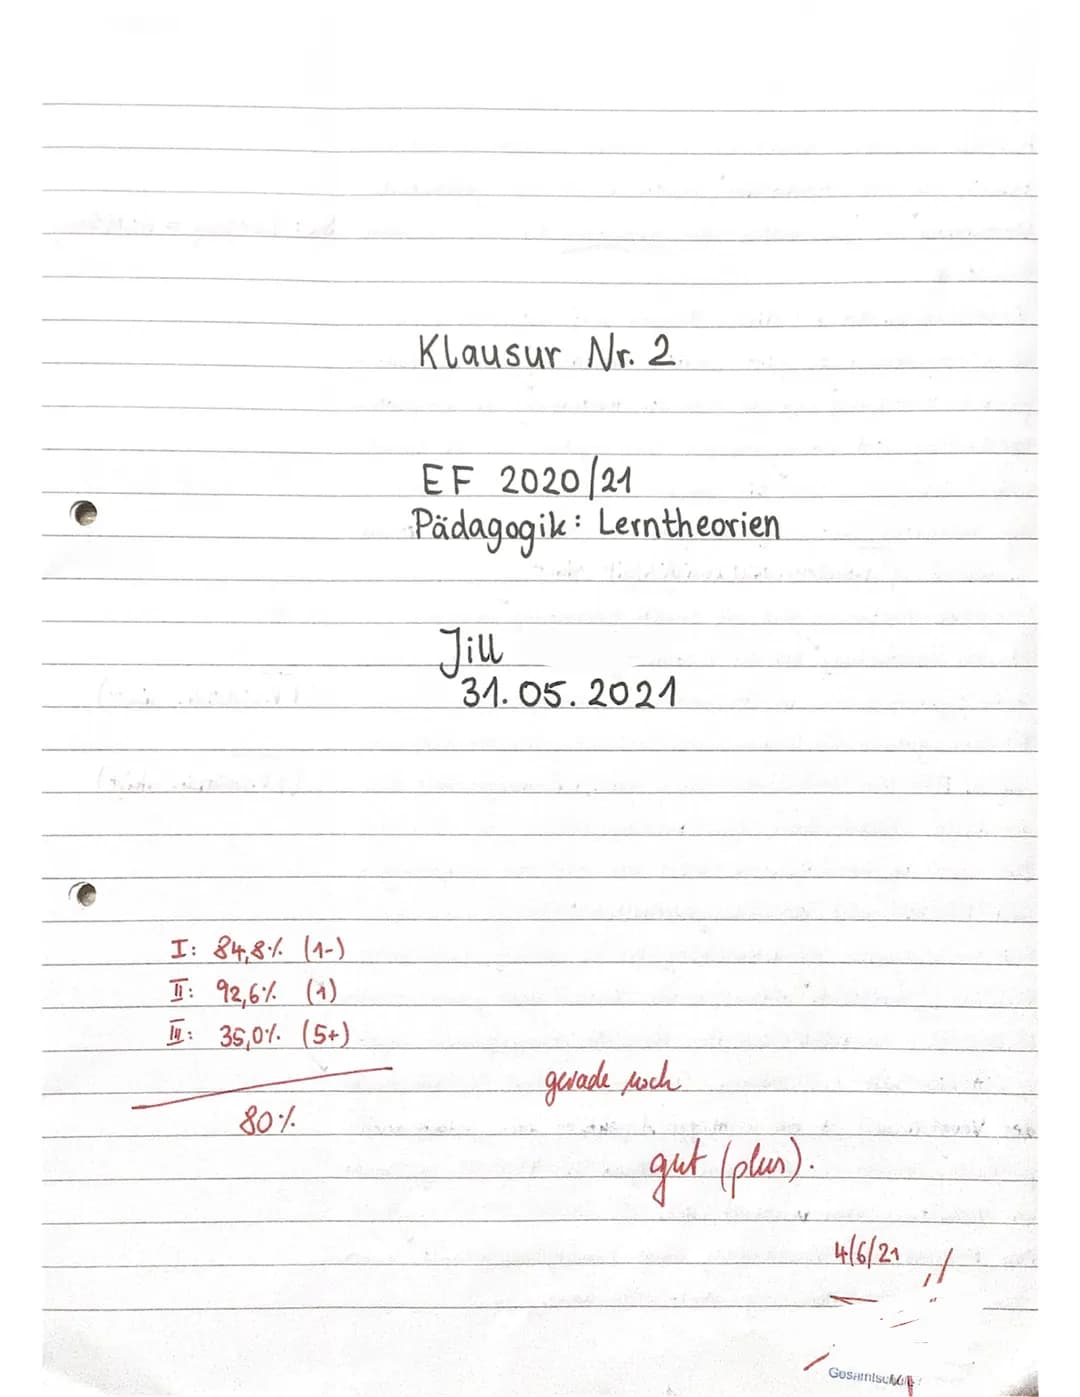 Klausur Nr. 2
EF 2020/21
Pädagogik: Lerntheorien
Jill
31.05.2021
I: 84,8% (1-)
II: 92,6% (1)
III: 35,0% (5+)
80%
gerade noch
gut (plus).
4/6/21
Gesamtschule